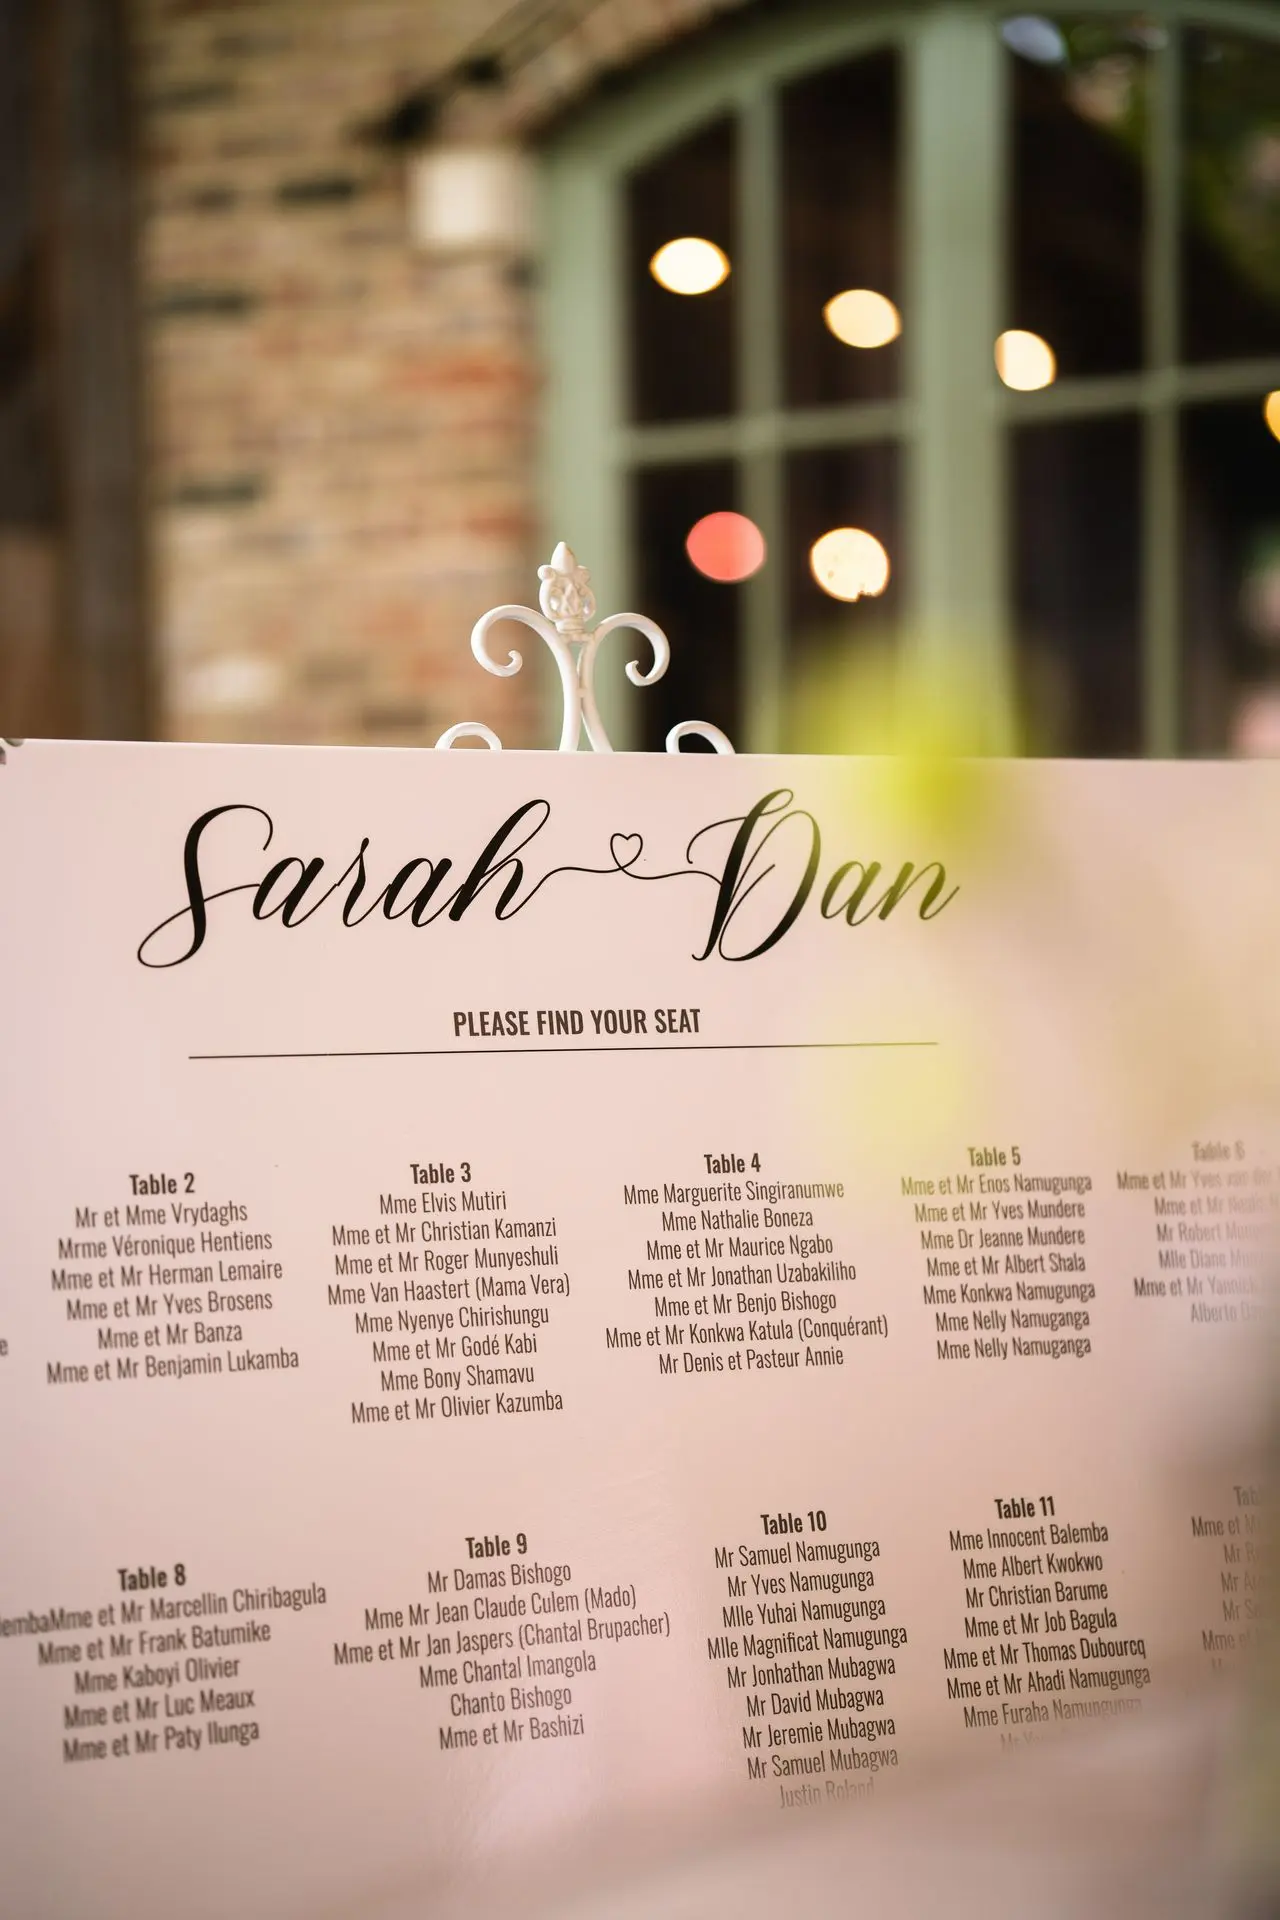 Sarah Dan
PLEASE FIND YOUR SEAT
Table 2
Mr et Mme Vrydaghs
Mrme Véronique Hentiens
Mme et Mr Herman Lemaire
Mme et Mr Yves Brosens
Mme et Mr Banza
Mme et Mr Benjamin Lukamba
Table 3
Mme Elvis Mutiri
Mme et Mr Christian Kamanzi
Mme et Mr Roger Munyeshuli
Mme Van Haastert (Mama Vera)
Mme Nyenye Chirishungu
Mme et Mr Godé Kabi
Mme Bony Shamavu
Mme et Mr Olivier Kazumba
Table 4
Mme Marguerite Singiranumwe
Mme Nathalie Boneza
Mme et Mr Maurice Ngabo
Mme et Mr Jonathan Uzabakiliho
Mme et Mr Benjo Bishogo
Mme et Mr Konkwa Katula (Conquérant)
Mr Denis et Pasteur Annie
Table 5
Mme et Mr Enos Namugunga
Mme et Mr Yves Mundere
Mme Dr Jeanne Mundere
Mme et Mr Albert Shala
Mme Konkwa Namugunga
Mme Nelly Namuganga
Mme Nelly Namuganga
Table 6
Mme et Mr Yves
Mme et Mr
Mr Robert
Mlle Diane
Mme et Mr Yannick
Alberto
Table 8
Mme et Mr Marcellin Chiribagula
Mme et Mr Frank Batumike
Mme Kaboyi Olivier
Mme et Mr Luc Meaux
Mme et Mr Paty Ilunga
Table 9
Mr Damas Bishogo
Mme Mr Jean Claude Culem (Mado)
Mme et Mr Jan Jaspers (Chantal Brupacher)
Mme Chantal Imangola
Chanto Bishogo
Mme et Mr Bashizi
Table 10
Mr Samuel Namugunga
Mr Yves Namugunga
Mlle Yuhai Namugunga
Mlle Magnificat Namugunga
Mr Jonhathan Mubagwa
Mr David Mubagwa
Mr Jeremie Mubagwa
Mr Samuel Mubagwa
Justin Roland
Table 11
Mme Innocent Balemba
Mme Albert Kwokwo
Mr Christian Barume
Mme et Mr Job Bagula
Mme et Mr Thomas Dubourcq
Mme et Mr Ahadi Namugunga
Mme Furaha Namungunga
Mr
Mme et
Mr
Mr
Mr
Mme